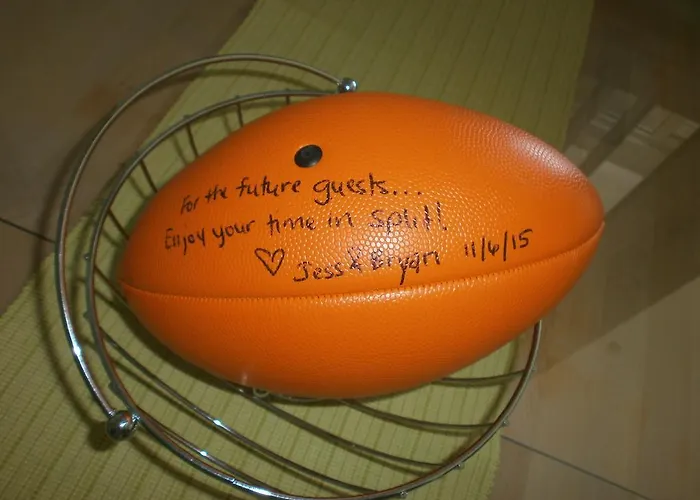 For the future guests...
Enjoy your time in Split!
♡ Jess & Bryan 11/6/15